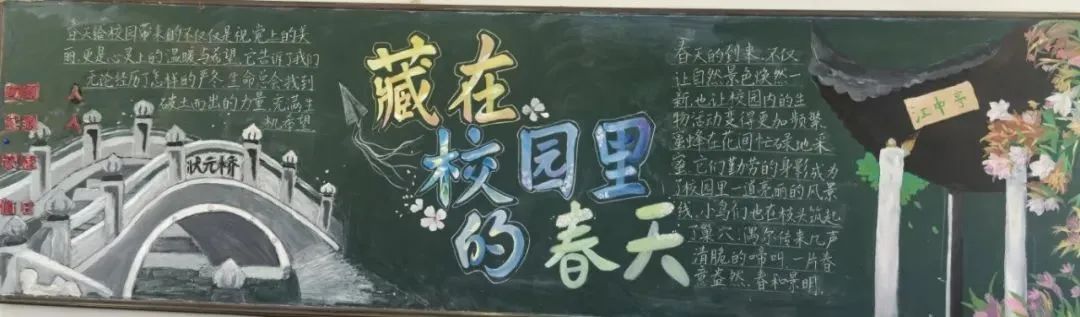 春天给校园带来的不仅仅是视觉上的美
丽,更是心灵上的温暖与希望,它告诉了我们
无论经历了怎样的严冬,生命总会找到
破土而出的力量,充满生
机,希望
状元桥
藏在
校园里
的春天
春天的到来,不仅
让自然景色焕然一
新,也让校园内的生
物活动变得更加频繁
蜜蜂在花间忙碌地采
蜜,它们勤劳的身影成为
了校园里一道亮丽的风景
线,小鸟们也在枝头筑起
了巢穴,偶尔传来几声
清脆的啼叫,一片春
意盎然,春和景明,
江中亭